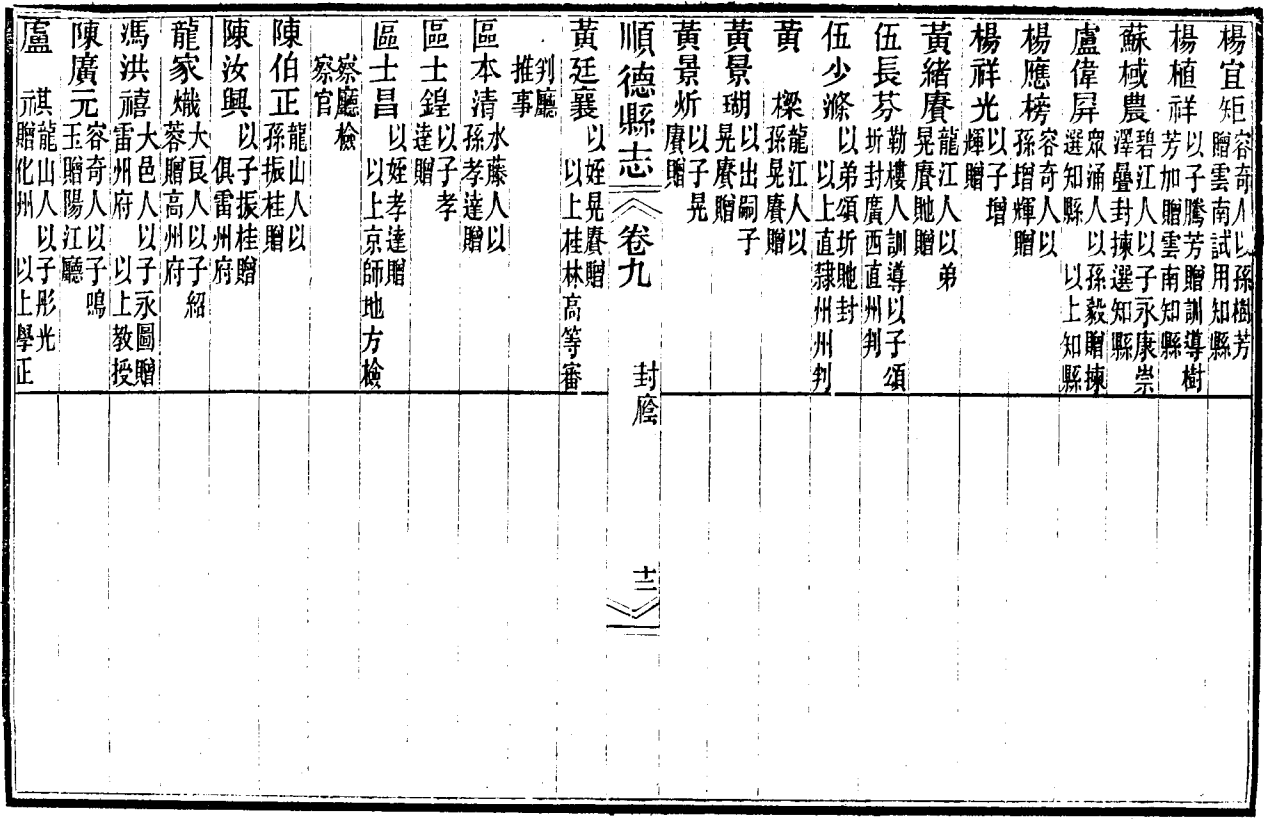 楊宜矩容奇人以孫樹芳贈雲南試用知縣
楊植祥以子騰芳贈訓導樹芳加贈雲南知縣
蘇棫農碧江人以子永康崇澤疊封揀選知縣
盧偉屏眾涌人以孫毅贈揀選知縣 以上知縣
楊應榜容奇人以孫增輝贈
楊祥光以子增輝贈
黃緒賡龍江人以弟晃賡貤贈
伍長芬勒樓人訓導以子頌圻封廣西直州判
伍少滌以弟頌圻貤封 以上直隸州州判
黃 樑龍江人以孫晃賡贈
黃景瑚以出嗣子晃賡贈
黃景炘以子晃賡贈
順德縣志 卷九 封廕 十二
黃廷襄以姪晃賡贈 以上桂林高等審
判廳推事
區本清水藤人以孫孝達贈
區士鍠以子孝達贈
區士昌以姪孝達贈 以上京師地方檢
察廳檢察官
陳伯正龍山人以孫振桂贈
陳汝興以子振桂贈 俱雷州府
龍家熾大良人以子紹蓉贈高州府
馮洪禧大邑人以子永圖贈雷州府 以上教授
陳廣元容奇人以子鳴玉贈陽江廳
盧祺元龍山人以子彤光贈化州 以上學正